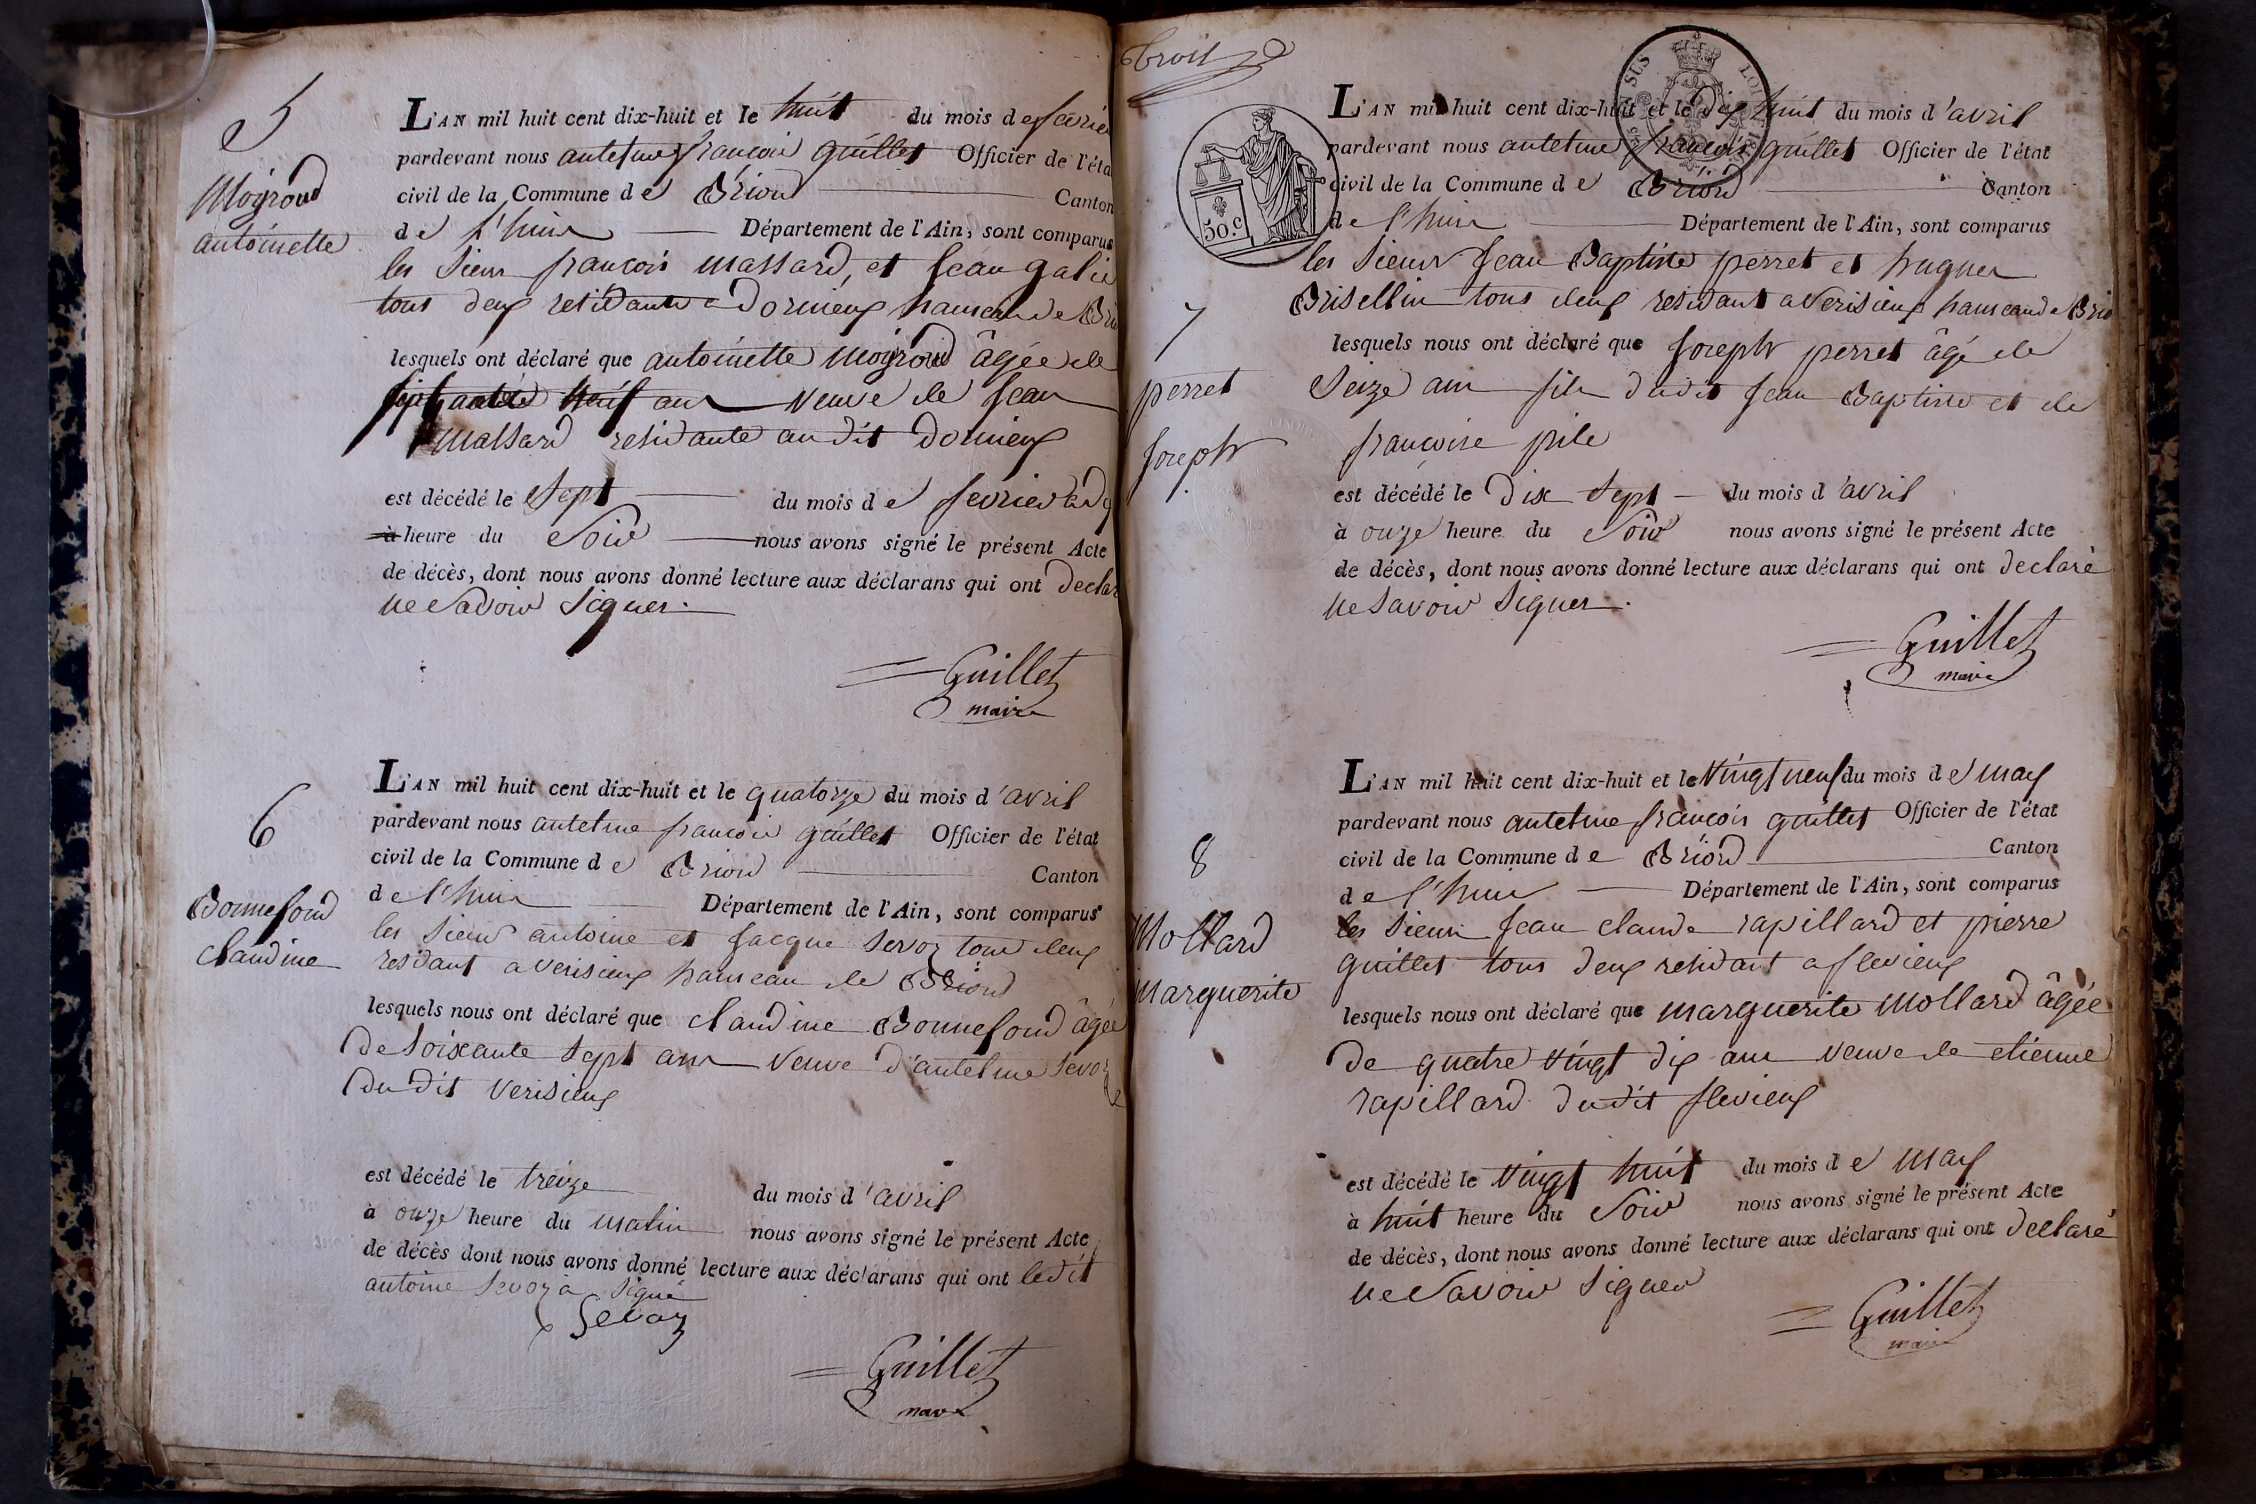 5
Moiroud
antoinette
L'AN mil huit cent dix-huit et le huit du mois de fevrier
pardevant nous antelme françois guillet Officier de l'éta
civil de la Commune de Briord Canton
de l'huis Département de l'Ain, sont comparus
les sieur françois massard, et Jean
tous deux residants a dornieux hameau de Brio
lesquels ont déclaré que antoinette Moiroud âgée de
neuf ans veuve de Jean
massard residante au dit dornieux
est décédé le sept du mois de fevrier
à heure du Soir nous avons signé le présent Acte
de décès, dont nous avons donné lecture aux déclarans qui ont declar
ne Savoir Signer.
Guillet
maire
6
Bonnefond
claudine
L'AN mil huit cent dix-huit et le quatorze du mois d'avril
pardevant nous antelme françois guillet Officier de l'état
civil de la Commune de Briord Canton
de l'huis Département de l'Ain, sont comparus
les sieur antoine et Jacque Sevoz tous deux
residant a verisieux hameau de Briord
lesquels nous ont déclaré que claudine Bonnefond âgée
de Soixante Sept ans veuve d'antelme Sevoz
du dit verisieux
est décédé le treize du mois d'avril
à onze heure du matin nous avons signé le présent Acte
de décès dont nous avons donné lecture aux déclarans qui ont ledit
antoine Sevoz à Signé
Sevoz
Guillet
maire
troit
50.c
SUS
7
perret
Joseph
L'AN mil huit cent dix-huit et le dix huit du mois d'avril
pardevant nous antelme françois guillet Officier de l'état
civil de la Commune de Briord Canton
de l'huis Département de l'Ain, sont comparus
les sieurs Jean Baptiste perret et hugues
Brisellin tous deux residant a verisieux hameau de Brio
lesquels nous ont déclaré que Joseph perret âgé de
Seize ans fils dudit Jean Baptiste et de
françoise pile
est décédé le dix sept du mois d'avril
à onze heure du Soir nous avons signé le présent Acte
de décès, dont nous avons donné lecture aux déclarans qui ont declaré
ne Savoir Signer.
Guillet
maire
8
Mollard
Marguerite
L'AN mil huit cent dix-huit et le Vingt neuf du mois de may
pardevant nous antelme françois guillet Officier de l'état
civil de la Commune de Briord Canton
de l'huis Département de l'Ain, sont comparus
les sieurs Jean claude rapillard et pierre
guillet tous deux residant a flevieux
lesquels nous ont déclaré que marguerite Mollard âgée
de quatre vingt dix ans veuve de etienne
rapillard dudit flevieux
est décédé le vingt huit du mois de may
à huit heure du Soir nous avons signé le présent Acte
de décès, dont nous avons donné lecture aux déclarans qui ont declaré
ne Savoir Signer
Guillet
maire